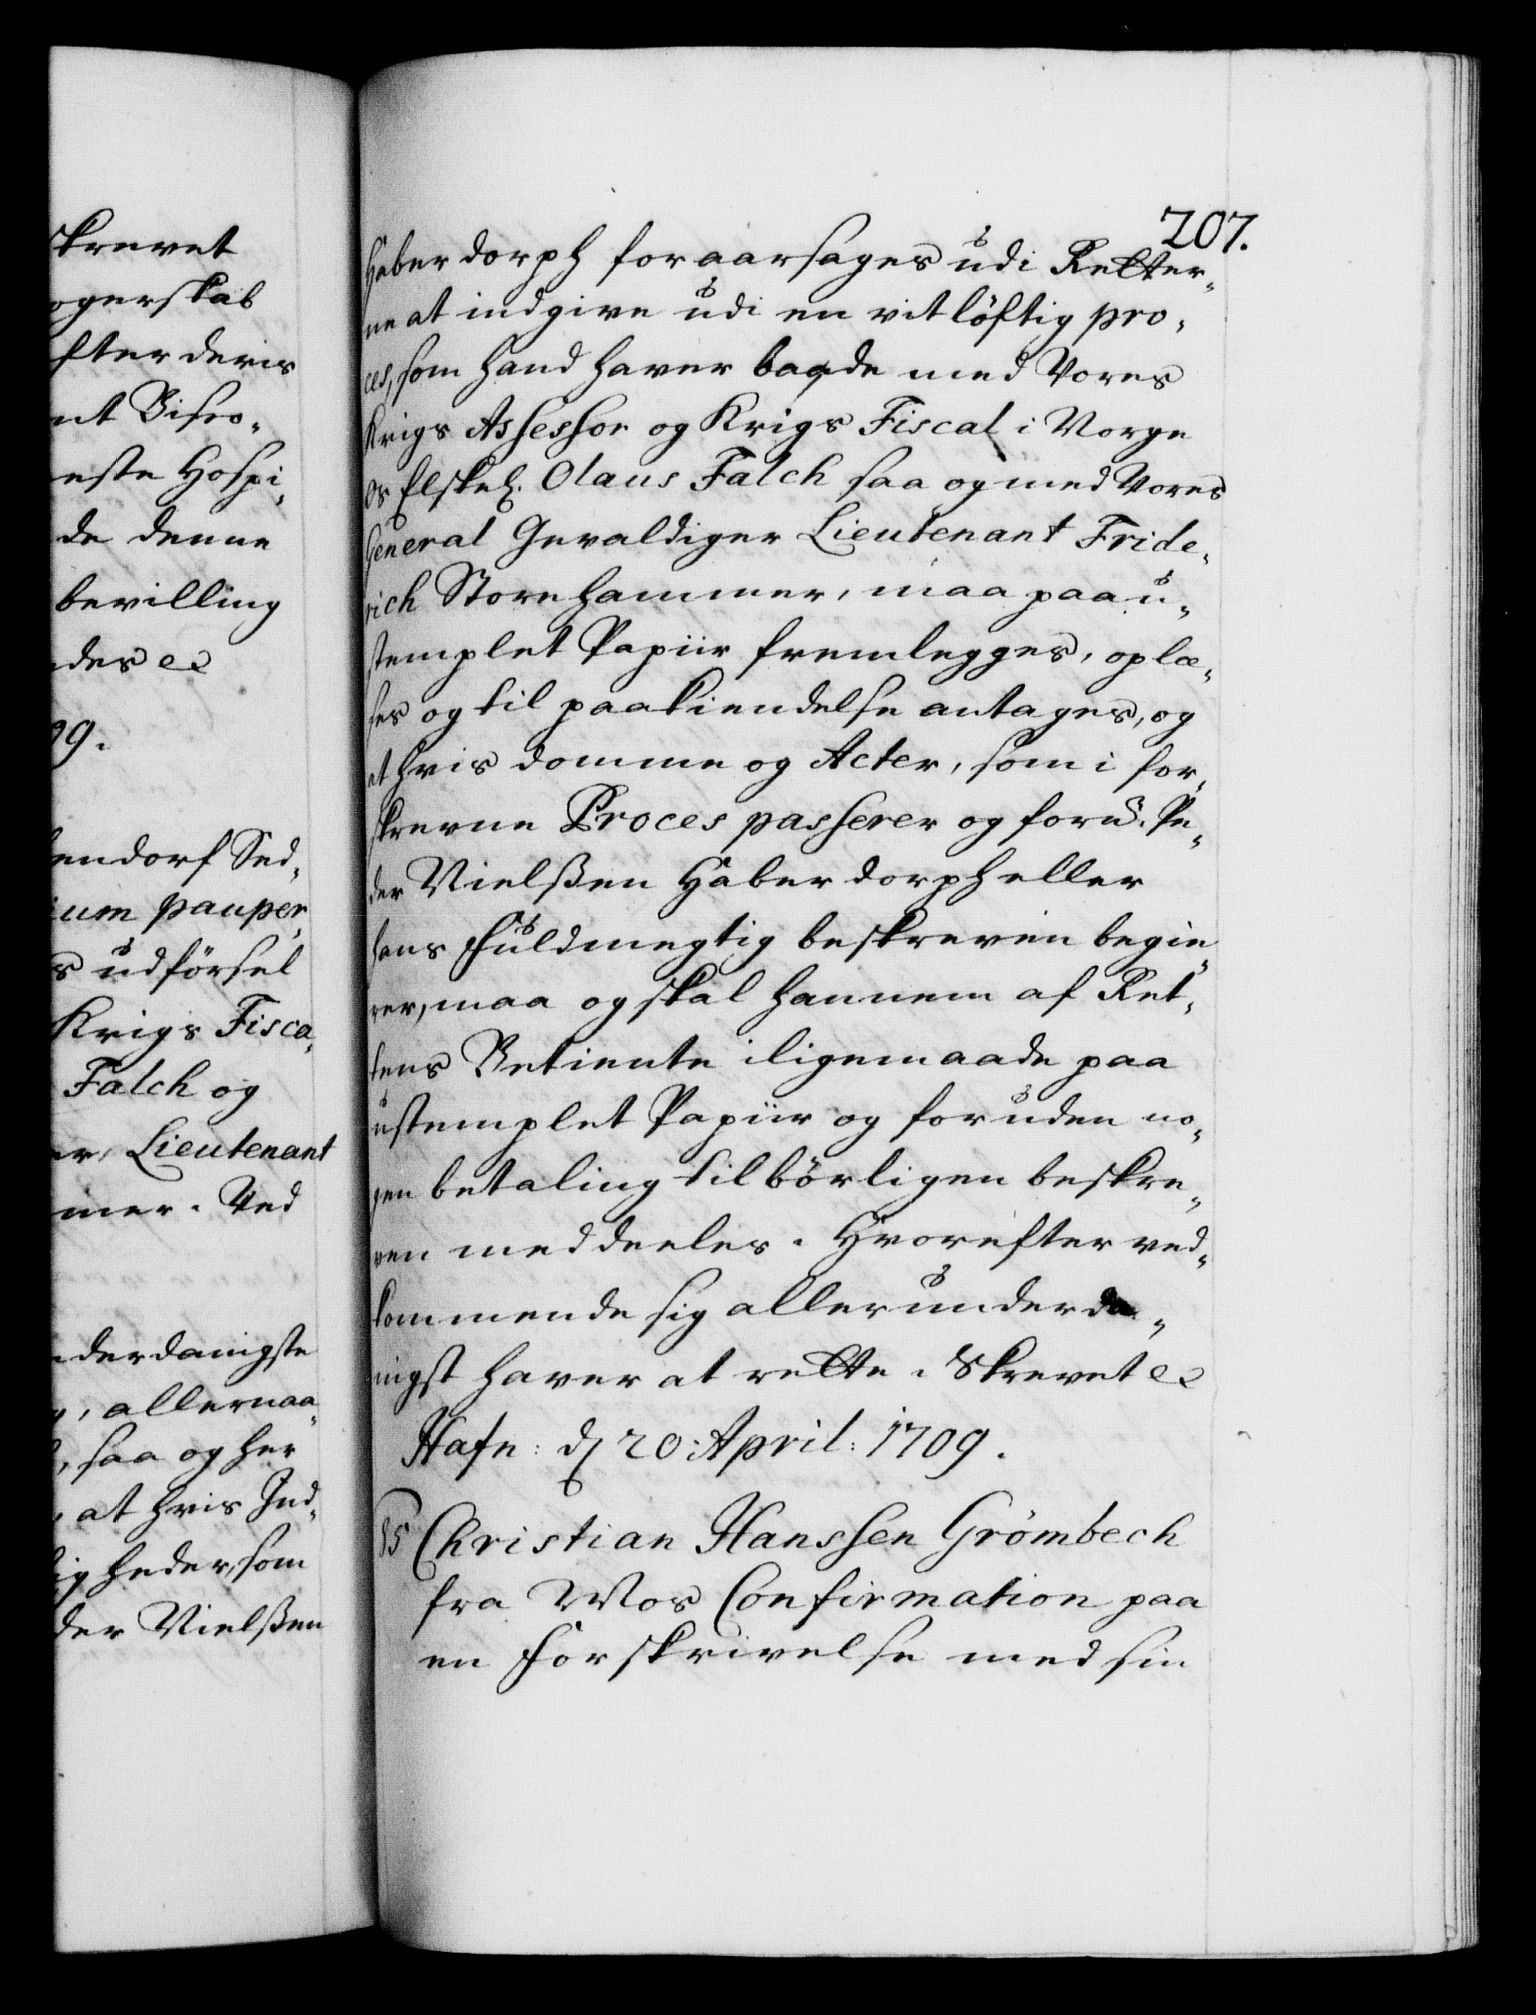 skrevet
ogerskab
fter deris
nt Bisco„
neste Hospi„
de denne
bevilling
ndes ec
09.
endorf Sed„
ium pauper„
s udförsel
Krigs Fisca„
Falch og
er, Lieutenant
mer. Ved
nderdanigste
g, allernaa„
, saa og her
, at hvis Ind„
ig heder, som
der Nielssen
207.
Haberdorph foraarsages udi Retter„
ne at indgive udi en vitlöftig pro„
ces, som hand haver baade med Vores
Krigs Assessor og Krigs Fiscal i Norge
Os Elskel. Olaus Falch saa og med Vores
General Gevaldiger Lieutenant Fride„
rich Storehammer, maa paa u„
stemplet Papiir fremlegges, oplæ„
ses og til paakiendelse antages, og
at hvis domme og Acter, som i for„
skrevne Proces passerer og fornd. Pe„
der Nielssen Haberdorph eller
hans Fuldmegtig beskreven begie„
rer, maa og skal hannem af Ret„
tens Betiente iligemaade paa
ustemplet Papiir og foruden no„
gen betaling tilbörligen beskre„
ven meddeeles. Hvorefter ved„
kommende sig allerunderda„
nigst haver at rette. Skrevet ec
Hafn: d 20: April: 1709.
85 Christian Hanssen Grömbech
fra Mos Confirmation paa
en Forskrivelse med sin